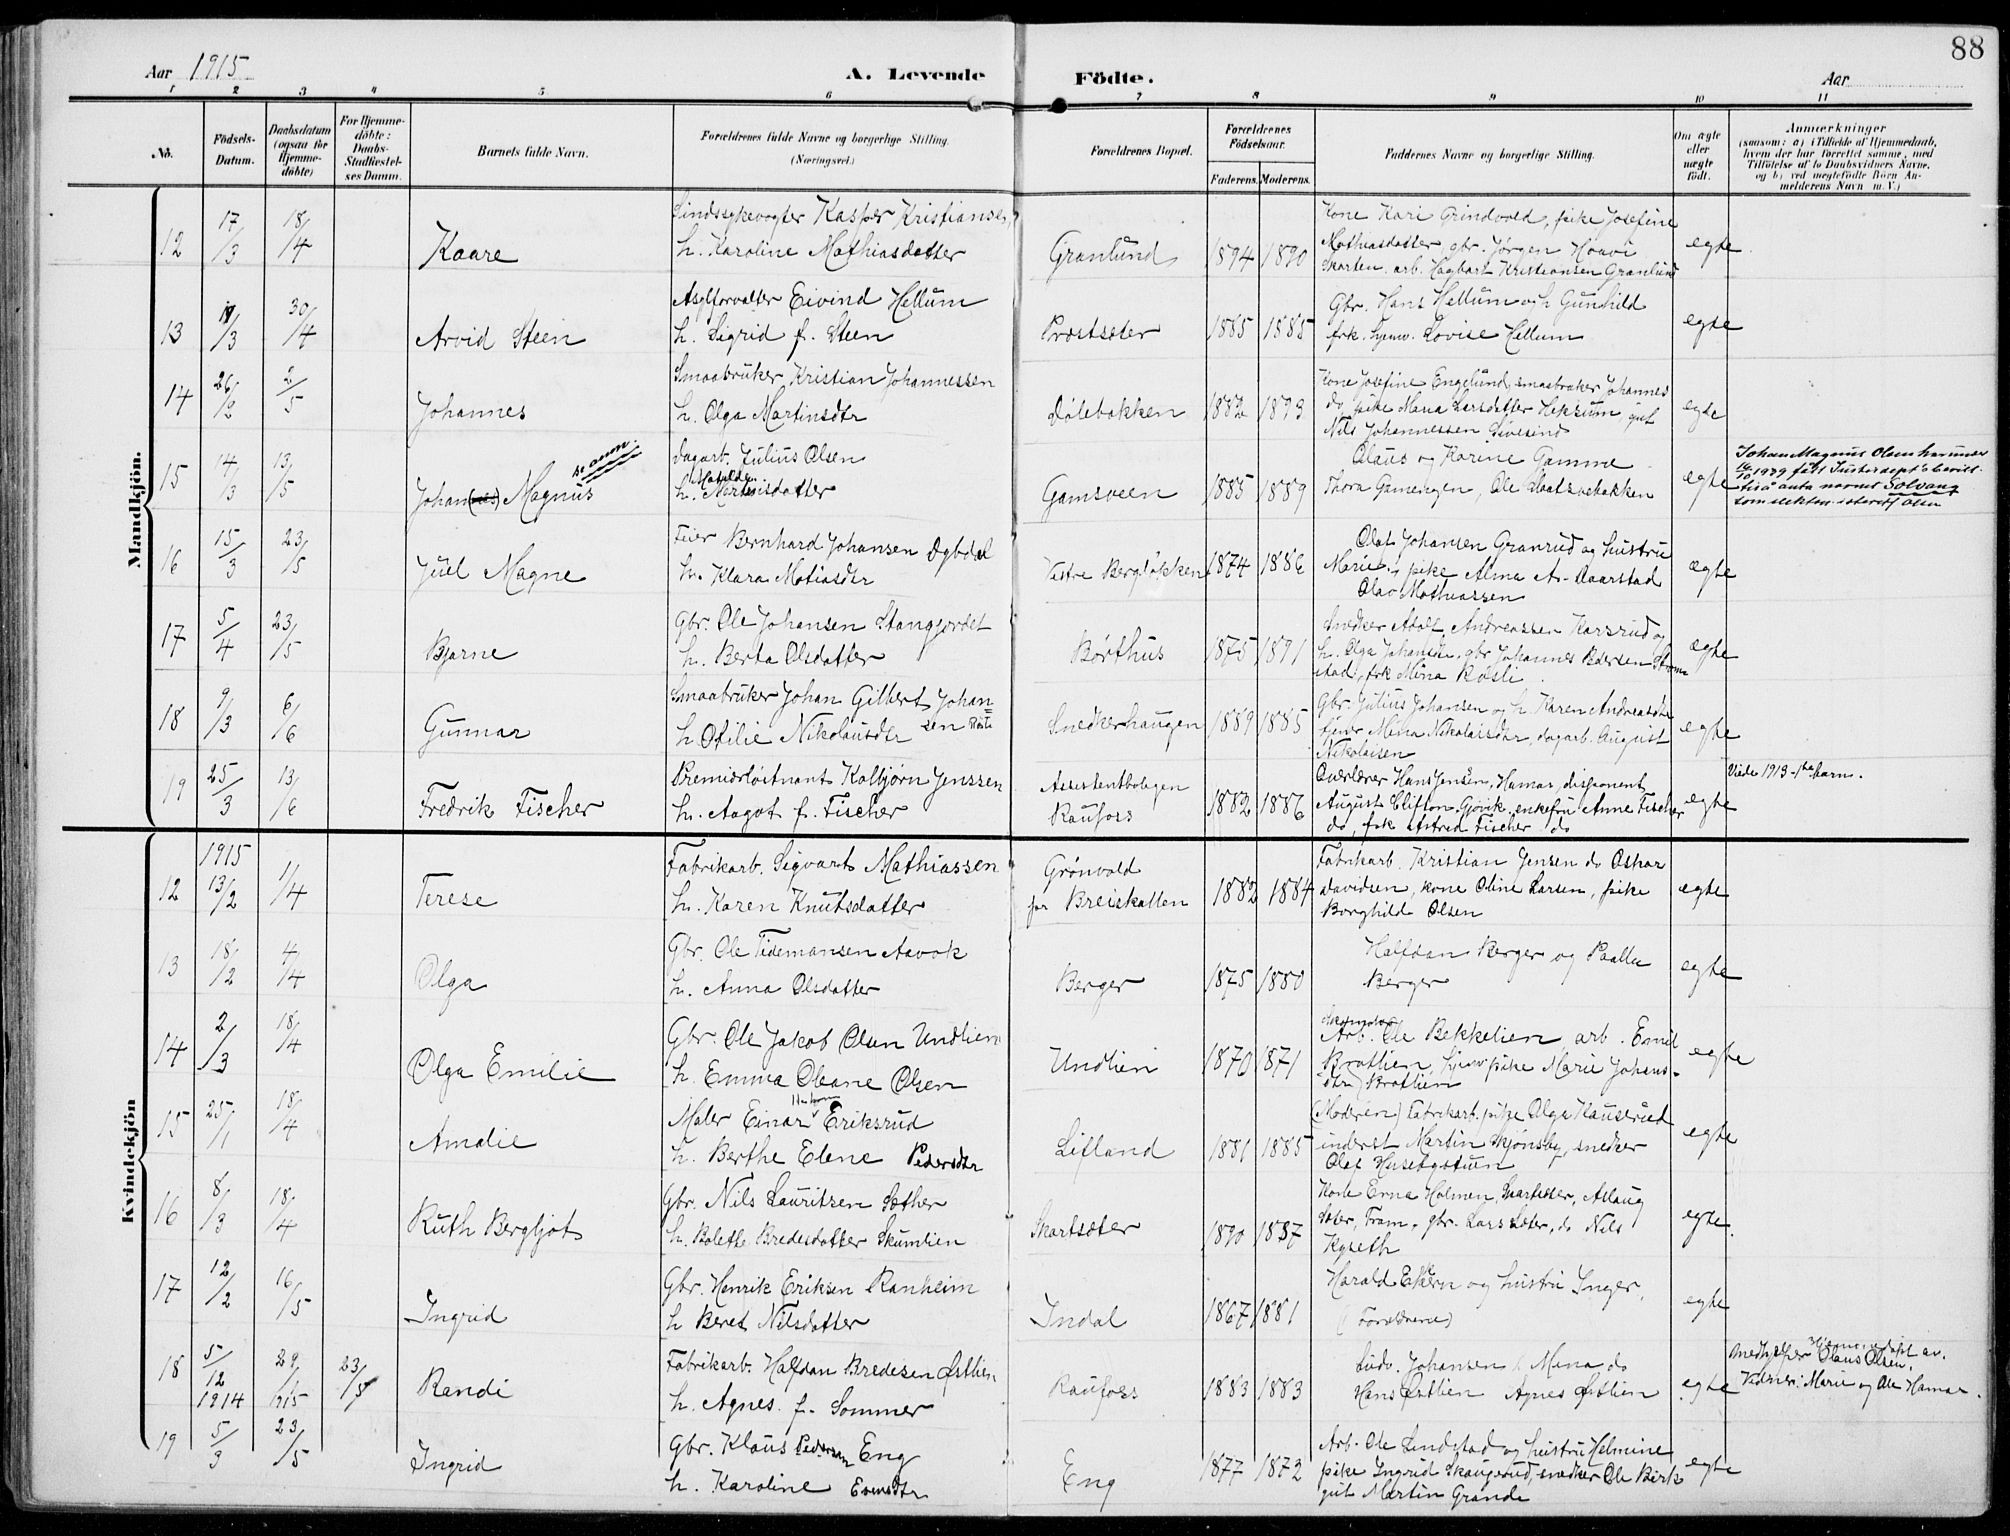 88
Aar 1915
A. Levende Födte.
Aar
1 2 3 4 5 6 7 8 9 10 11
No.
Födsels-Datum.
Daabsdatum (ogsaa for Hjemme-döbte)
For Hjemme-döbte: Daabs-Stadfæstelses Datum.
Barnets fulde Navn.
Forældrenes fulde Navne og borgerlige Stilling. (Næringsvei.)
Forældrenes Bopæl.
Forældrenes Födselsaar.
Faderens. Moderens.
Faddernes Navne og borgerlige Stilling.
Om ægte eller uægte födt.
Anmærkninger
(saasom: a) i Tilfælde af Hjemmedaab, hvem der har forrettet samme, med Tilföielse af to Daabsvidners Navne. og b) ved uægtefödte Börn Anmelderens Navn m. V.)
Mandkjön.
12 17/3 18/4 Kaare
Sindssykevogter Kasper Kristiansen
h. Karoline Mathiasdatter
Granlund 1894 1890
Kone Kari Grindvold, pike Josefine
Mathiasdatter, gbr. Jørgen
Skarten, arb. Hagbart Kristiansen Granlund
egte
13 /3 30/4 Arvid Steen
Asylforvalter Eivind Hellum
h. Sigrid f. Steen
Prestseter 1885 1885
Gbr. Hans Hellum og h. Gunhild
frk. hjmv. Lovise Hellum
egte
14 26/2 2/5 Johannes
Smaabruker Kristian Johannessen
h. Olga Martinsdtr
Dølebakken 1882 1893
Kone Josefine Engelund, smaabruker Johannes
do, pike Mena Larsdatter Heksum, gut
Nils Johannessen Sivesind
egte
15 14/3 13/5 Johan(nes) Magnus
se anm.
Dagarb. Julius Olsen
h. Matilde Martinisdatter
Gamsveen 1885 1889
Olaus og Karine Gamme
Thora Gamengen, Ole
egte
Johan Magnus Olsen har under
16/10 1939 fått Justisdept's bevill-
til å anta navnet Solvang
som slektsn. istedetf Olsen
16 15/3 23/5 Juel Magne
Feier Bernhard Johansen Dybdal
h. Klara Matiasdtr
Vestre Bergløkken 1874 1886
Olaf Johansen Granrud og hustru
Marie, pike Alma A. Daarstad
Olav Mathiassen
egte
17 5/4 23/5 Bjarne
Gbr. Ole Johansen Stangjordet
h. Berta Olsdatter
Børthus 1875 1891
Snedker Adolf Andreassen Karsrud og
h. Olga Johansen, gbr Johannes Pedersen
stad, frk Mina Røsli.
egte
18 9/3 6/6 Gunnar
Smaabruker Johan Gilbert Johan
sen
h. Otilie Nikolausdtr
Snedkerhaugen 1889 1885
Gbr. Julius Johansen og h. Karen Andreasdtr
tjmv Mina Nikolaisdtr, dagarb. August
Nikolaisen
egte
19 25/3 13/6 Fredrik Fischer
Premierløitnant Kolbjørn Jenssen
h. Aagot f. Fischer
Assistentboligen
Raufoss 1882 1886
Overlærer Hans Jensen, Hamar, disponent
August Clifton, Gjøvik, enkefru Anne Fischer
do, frk Astrid Fischer do
egte
Viede 1913 - 1ste barn.
Kvindekjön
12 1915 13/2 1/4 Terese
Fabrikarb. Sigvart Mathiassen
h. Karen Knutsdatter
Grønvold
for Breiskallen 1882 1884
Fabrikarb. Kristian Jensen do Oskar
Davidsen, kone Oline Larsen, pike
Borghild Olsen
egte
13 18/2 4/4 Olga
Gbr. Ole Tidemansen Aavok
h. Anna Olsdatter
Berger 1875 1880
Halfdan Berger og Paalla
Berger
egte
14 2/3 18/4 Olga Emilie
Gbr. Ole Jakob Olsen Undlien
h. Emma Oleane Olsen
Undlien 1870 1871
Arb. Ole Bekkelien, arb. Emil
Bratlien, hjmv pike Marie Johans-
dtr Bratlien
egte
15 25/1 18/4 Amalie
Maler Einar Eriksrud
h. Berthe Elene Pedersdtr
Lifland 1881 1885
(Moderen) Fabrikarb. pike Olga Hauserud
inderst Martin Skjønsby, snedker
Olaf Husebystuen
egte
16 8/3 18/4 Ruth Bergljot
Gbr. Nils Lauritsen Sæther
h. Bolette Bredesdatter Skumlien
Skartseter 1890 1887
Kone Erna Holmen, Skartseter, Aslaug
Sæter, Fram, gbr. Lars Sæter, do Nils
Kyseth
egte.
17 12/2 16/5 Ingrid
Gbr. Henrik Eriksen Ranheim
h Beret Nilsdatter
Indal 1867 1881
Harald Ekern og hustru Inger,
(Forældrene)
egte
18 5/12 1914 29/1 1915 23/5 Randi
Fabrikarb. Halfdan Bredesen Østlien
h. Agnes f. Sommer
Raufoss 1883 1883
Ludv. Johansen, Mina do
Hans Østlien Agnes Østlien
egte
Hjemmedøpt av.
medhjelper Olaus Olsen.
Vidner: Marie og Ole Hamar.
19 5/3 23/5 Ingrid
Gbr. Klaus Pedersen Eng
h. Karoline Evensdtr
Eng 1877 1872
Arb. Ole Lundstad og hustru Helmine
pike Ingrid Skaugerud, snedker Ole Birk
gut Martin Grande
egte